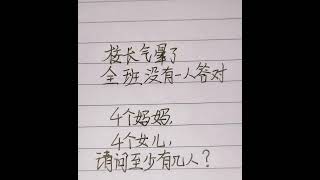 校长气晕了
全班没有一人答对
4个妈妈,
4个女儿,
请问至少有几人?